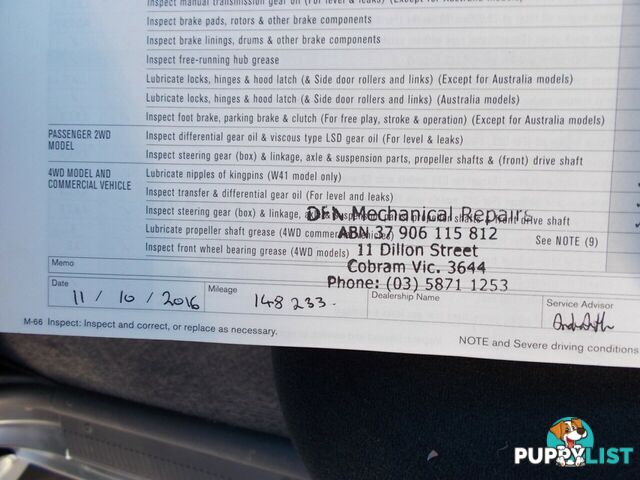 Inspect manual transmission gear oil (For level & leaks) (Except for Australia models)
Inspect brake pads, rotors & other brake components
Inspect brake linings, drums & other brake components
Inspect free-running hub grease
Lubricate locks, hinges & hood latch (& Side door rollers and links) (Except for Australia models)
Lubricate locks, hinges & hood latch (& Side door rollers and links) (Australia models)
Inspect foot brake, parking brake & clutch (For free play, stroke & operation) (Except for Australia models)
PASSENGER 2WD MODEL
Inspect differential gear oil & viscous type LSD gear oil (For level & leaks)
Inspect steering gear (box) & linkage, axle & suspension parts, propeller shafts & (front) drive shaft
4WD MODEL AND COMMERCIAL VEHICLE
Lubricate nipples of kingpins (W41 model only)
Inspect transfer & differential gear oil (For level and leaks)
Inspect steering gear (box) & linkage, axle & suspension parts, propeller shafts & front drive shaft
Lubricate propeller shaft grease (4WD commercial vehicle)
See NOTE (9)
Inspect front wheel bearing grease (4WD models)
DEN Mechanical Repairs
ABN 37 906 115 812
11 Dillon Street
Cobram Vic. 3644
Phone: (03) 5871 1253
Memo
Date
11 / 10 / 2016
Mileage
148 233.
Dealership Name
Service Advisor
M-66 Inspect: Inspect and correct, or replace as necessary.
NOTE and Severe driving conditions
PUPPYLIST